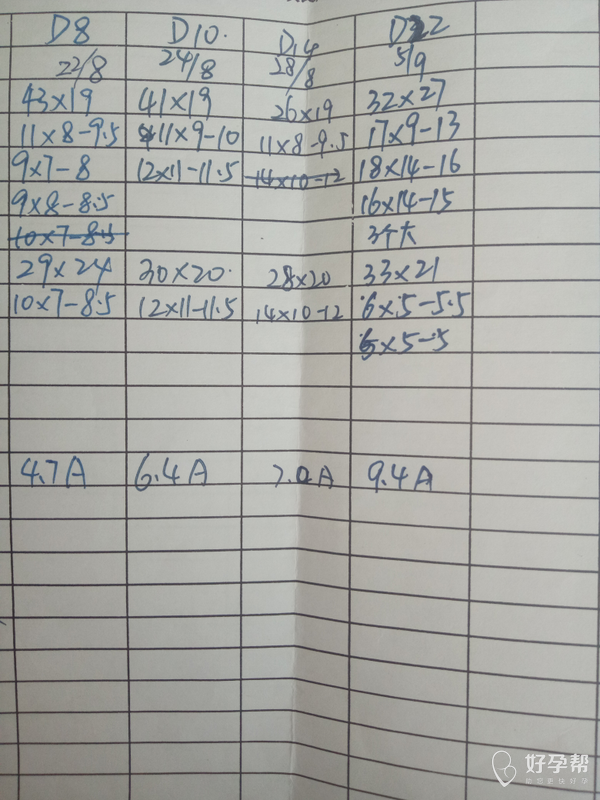 D8 D10. D14 D22
22/8 24/8 28/8 5/9
43×19 41×19 26×19 32×27
11×8-9.5 11×9-10 11×8-9.5 17×9-13
9×7-8 12×11-11.5 14×10-12 18×14-16
9×8-8.5 16×14-15
10×7-8.5 3个大
29×24 30×20. 28×20 33×21
10×7-8.5 12×11-11.5 14×10-12 6×5-5.5
5×5-5
4.7A 6.4A 7.0A 9.4A
好孕帮